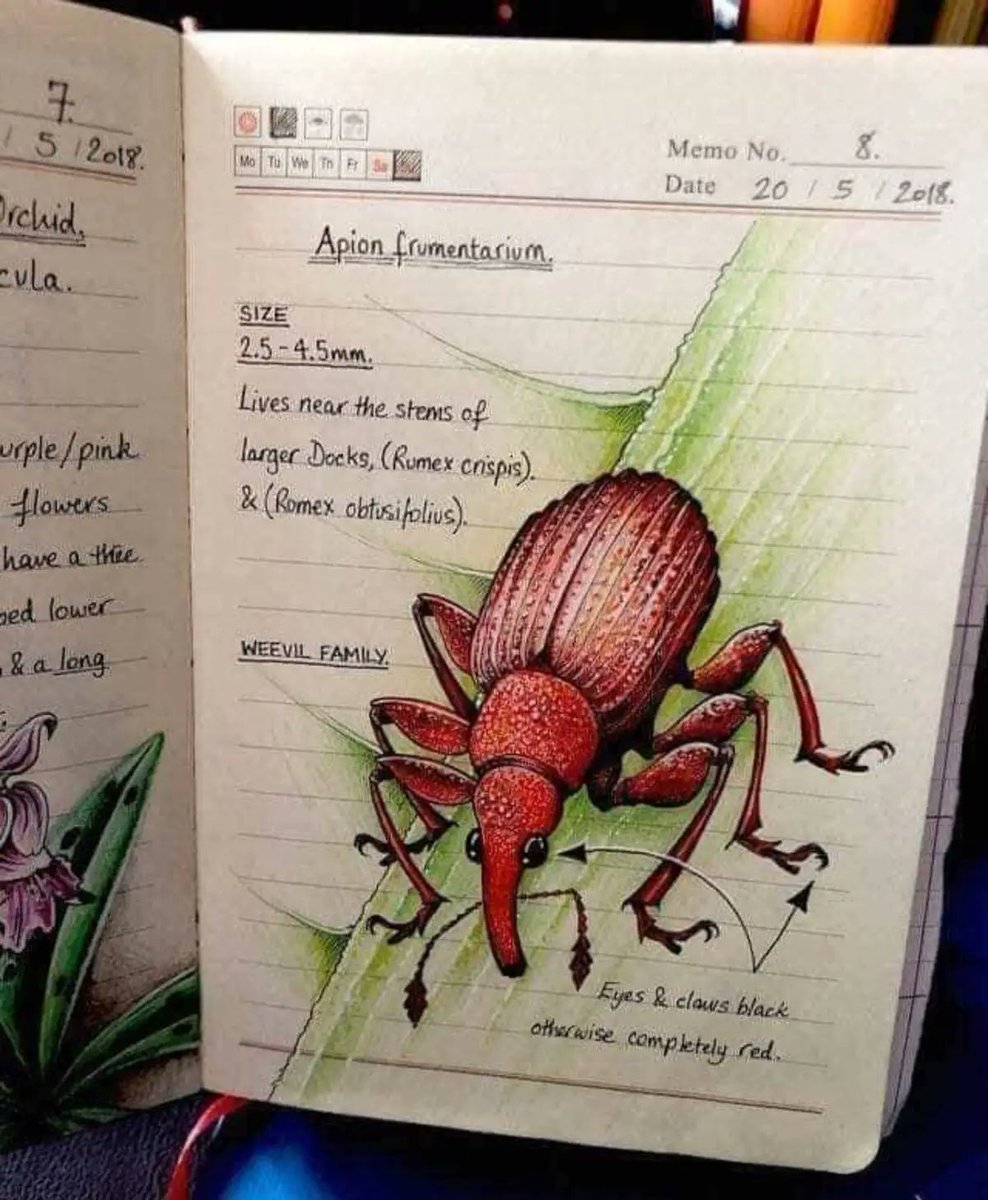 7.
/ 5 / 2018.
Orchid,
cula.
urple/pink
flowers
have a thee
ped lower
& a long
Mo Tu We Th Fr Sa
Memo No. 8.
Date 20 / 5 / 2018.
Apion frumentarium.
SIZE
2.5-4.5mm.
Lives near the stems of
larger Docks, (Rumex crispis).
& (Romex obtusifolius).
WEEVIL FAMILY.
Eyes & claws black
otherwise completely red.